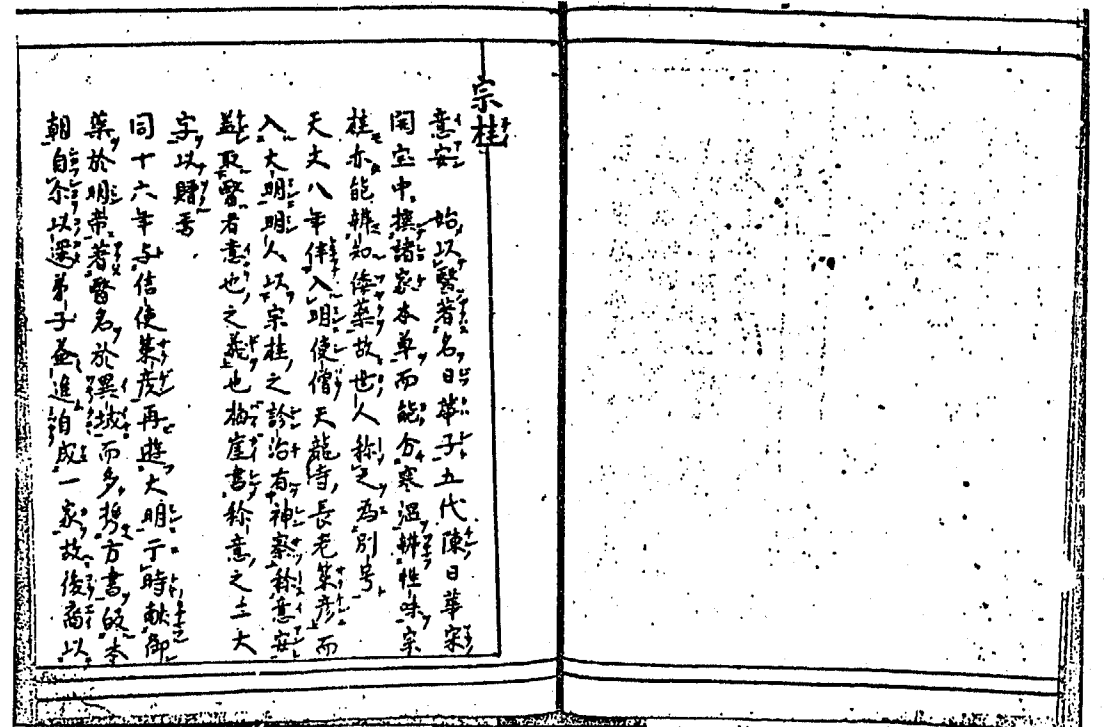 宗桂
意安 始以醫著名日華子五代陳日華宋
開宝中撰諸家本草而能分寒温辨性味宗
桂亦能辨知倭薬故世人称之為別号
天文八年伴入明使僧天龍寺長老策彦而
入大明明人以宗桂之診治有神察称意安
蓋取醫者意也之義也梅崖書称意之二大
字以贈焉
同十六年与信使策彦再遊大明于時献御
薬於明帝著醫名於異域而多携方書皈本
朝自尓以還弟子益進自成一家故後裔以